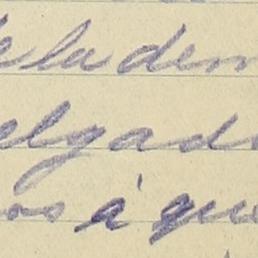 e la dem
elgad
os á que